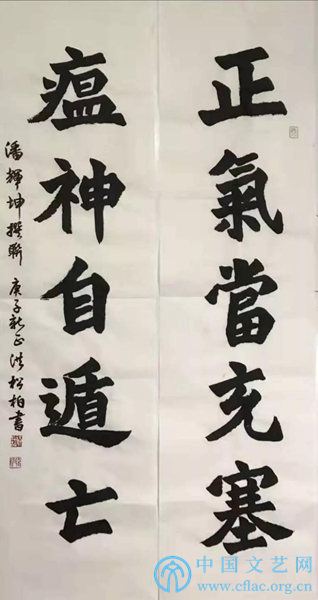 正氣當充塞
瘟神自遁亡
潘輝坤撰聯 庚子新正洪松柏書
中国文艺网
www.cflac.org.cn